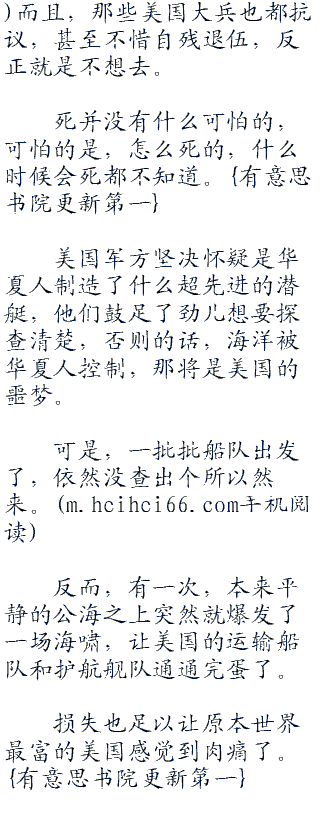 )而且，那些美国大兵也都抗
议，甚至不惜自残退伍，反
正就是不想去。
死并没有什么可怕的，
可怕的是，怎么死的，什么
时候会死都不知道。{有意思
书院更新第一}
美国军方坚决怀疑是华
夏人制造了什么超先进的潜
艇，他们鼓足了劲儿想要探
查清楚，否则的话，海洋被
华夏人控制，那将是美国的
噩梦。
可是，一批批船队出发
了，依然没查出个所以然
来。(m.hcihci66.com手机阅
读)
反而，有一次，本来平
静的公海之上突然就爆发了
一场海啸，让美国的运输船
队和护航舰队通通完蛋了。
损失也足以让原本世界
最富的美国感觉到肉痛了。
{有意思书院更新第一}